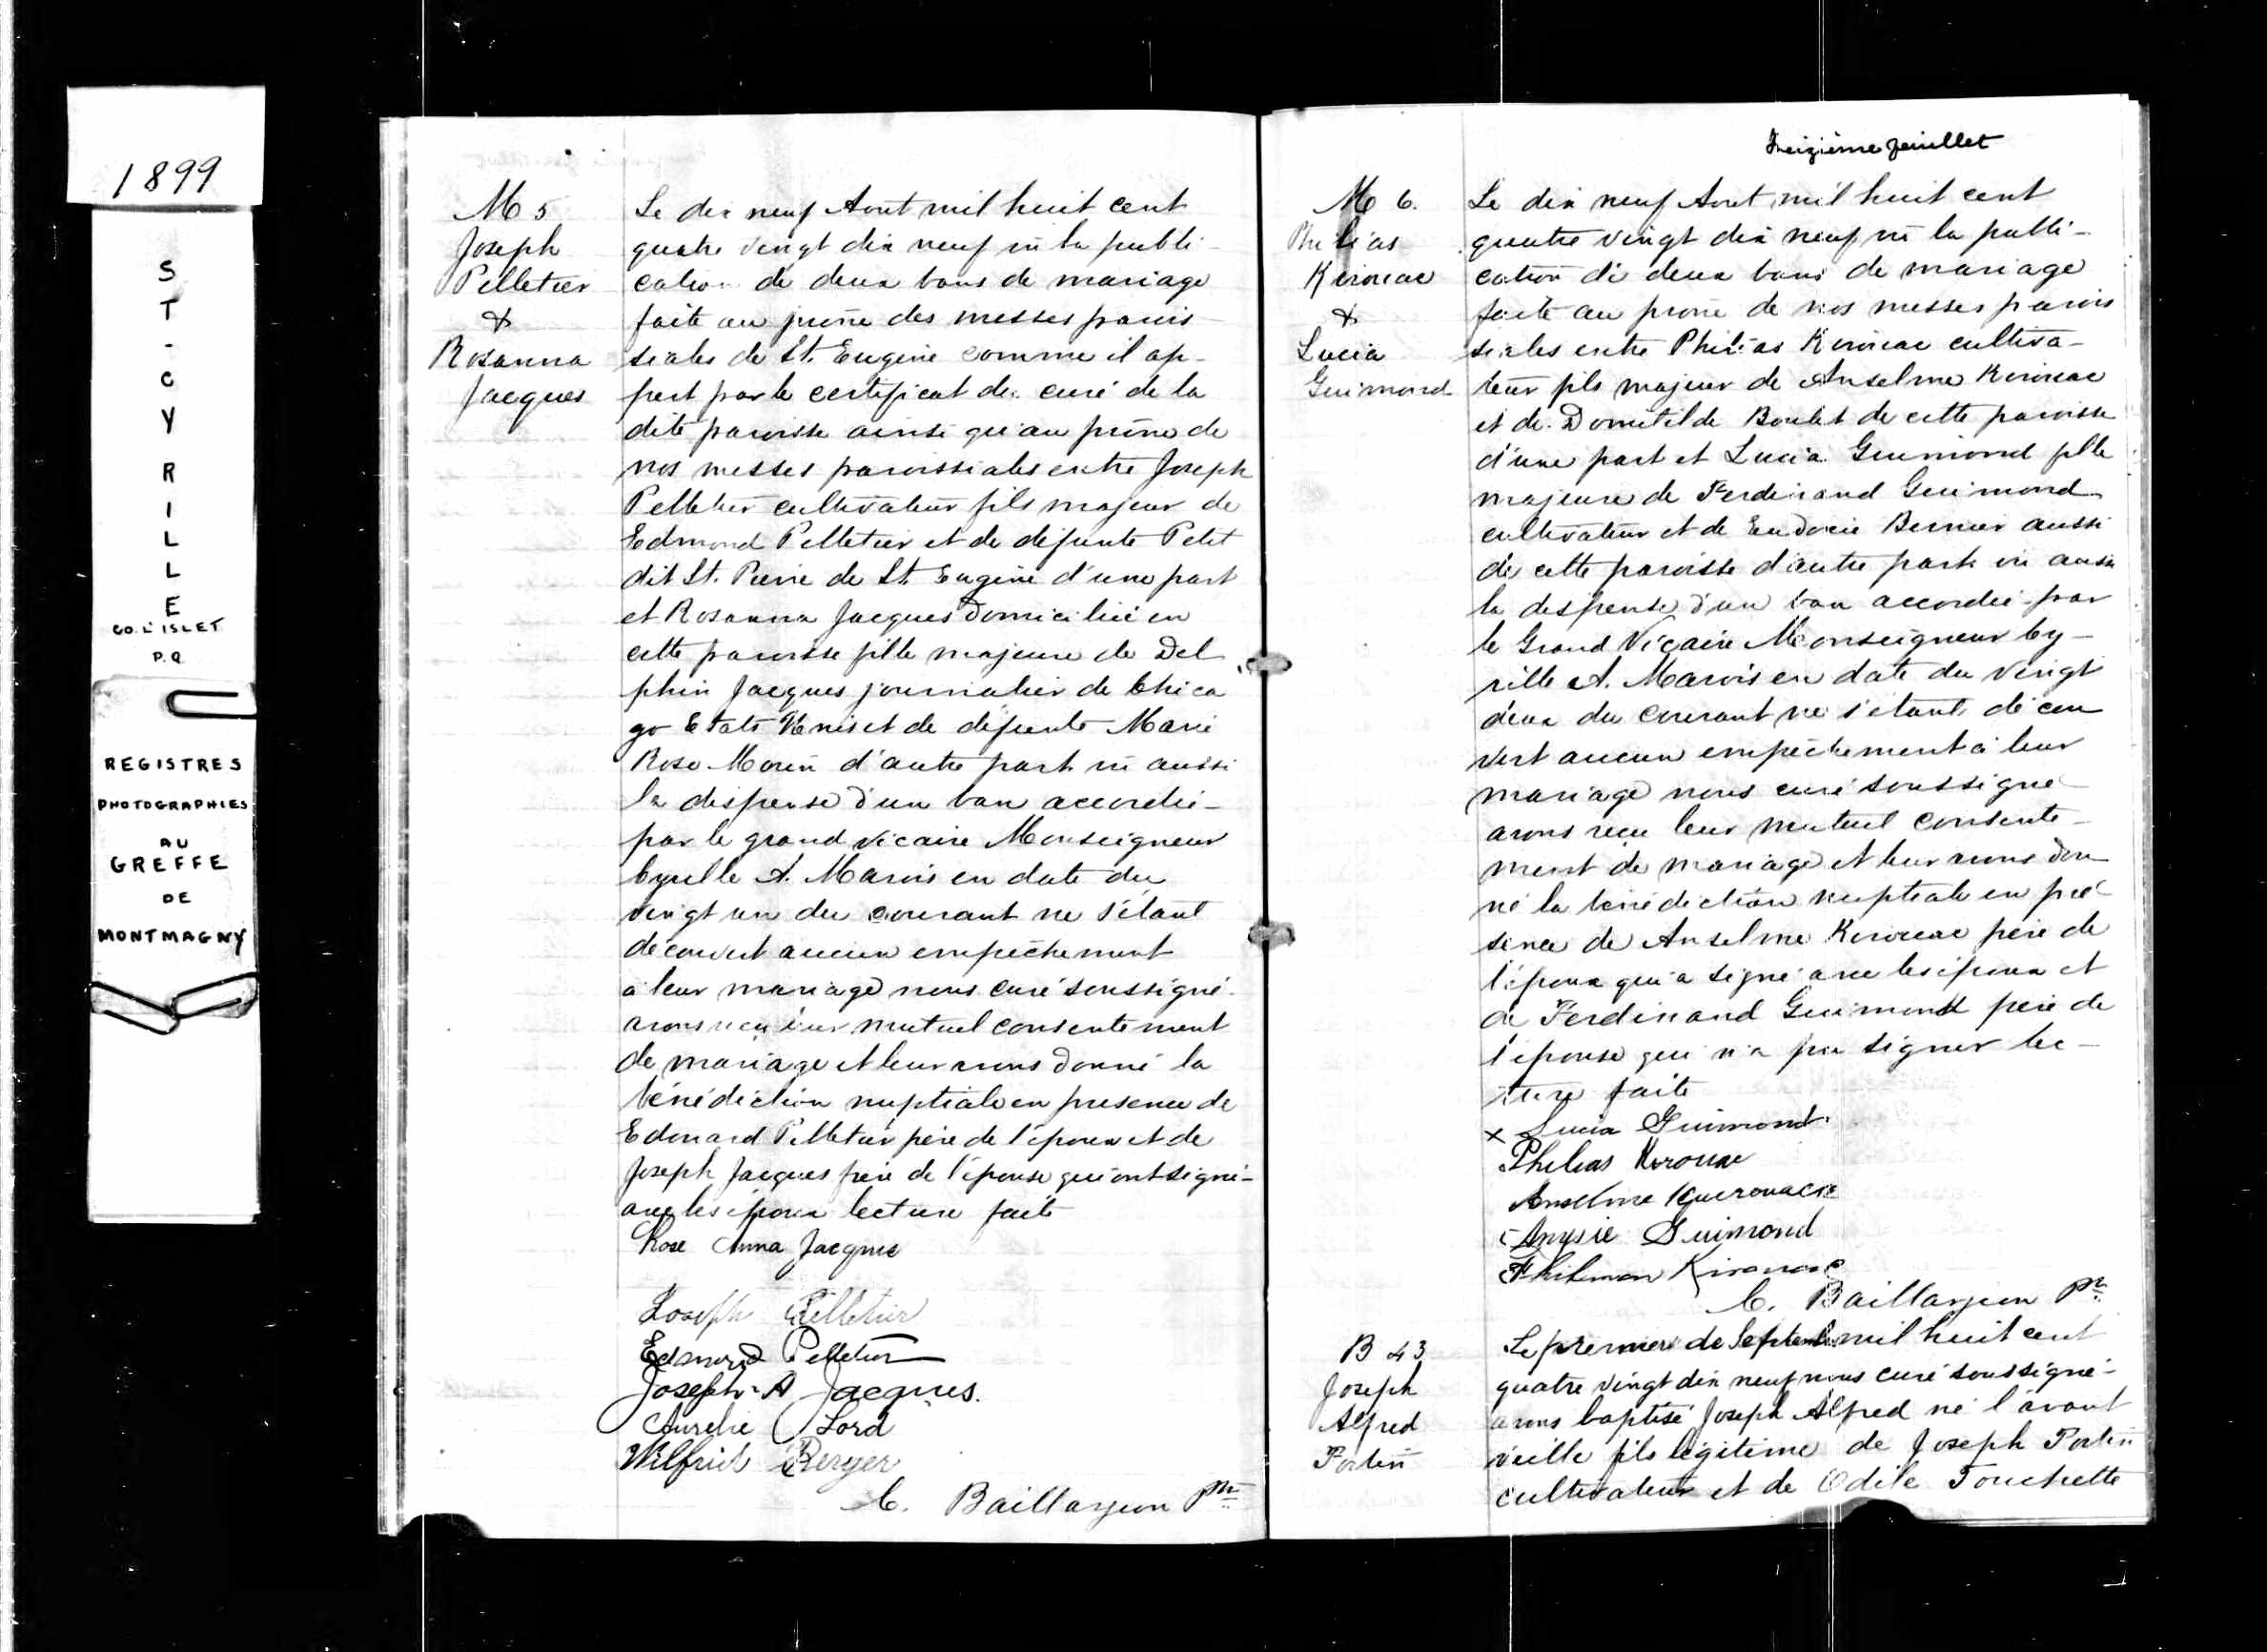 1899
ST-CYRILLE
CO. L'ISLET
P.Q
REGISTRES
PHOTOGRAPHIES
AU
GREFFE
DE
MONTMAGNY
M 5
Joseph
Pelletier
&
Rosanna
Jacques
Le dix neuf Aout mil huit cent
quatre vingt dix neuf vu la publi-
cation de deux bans de mariage
faite au prône des messes parois
siales de St. Eugène comme il ap-
pert par le certificat du curé de la
dite paroisse ainsi qu'au prône de
nos messes paroissiales entre Joseph
Pelletier cultivateur fils majeur de
Edmond Pelletier et de défunte Petit
dit St. Pierre de St Eugène d'une part
et Rosanna Jacques domiciliée en
cette paroisse fille majeure de Del
phin Jacques journalier de Chica
go Etats Unis et de défunte Marie
Rose Morin d'autre part vu aussi
la dispense d'un ban accordée-
par le grand vicaire Monseigneur
Cyrille A. Marois en date du
vingt un du courant ne s'étant
découvert aucun empêchement
à leur mariage nous curé soussigné-
avons reçu leur mutuel consentement
de mariage et leur avons donné la
bénédiction nuptiale en presence de
Edouard Pelletier père de l'époux et de
Joseph Jacques frère de l'épouse qui ont signé-
avec les époux lecture faite
Rose Anna Jacques
Joseph Pelletier
Edmond Pelletier
Joseph-A Jacques.
Aurelie Lord
Wilfrid Berger
C. Baillargeon Ptre
Treizième feuillet
M 6.
Philias
Kirouac
&
Lucia
Guimond
Le dix neuf Aout mil huit cent
quatre vingt dix neuf vu la publi-
cation de deux bans de mariage
faite au prône de nos messes parois
siales entre Philias Kirouac cultiva-
teur fils majeur de Anselme Kirouac
et de Domitilde Boulet de cette paroisse
d'une part et Lucia Guimond fille
majeure de Ferdinand Guimond
cultivateur et de Eudoxie Bernier aussi
de cette paroisse d'autre part vu aussi
la dispense d'un ban accordée par
le Grand Vicaire Monseigneur Cy-
rille A. Marois en date du vingt
deux du courant ne s'étant décou
vert aucun empêchement à leur
mariage nous curé soussigné-
avons reçu leur mutuel consente-
ment de mariage et leur avons don
né la bénédiction nuptiale en pré-
sence de Anselme Kirouac père de
l'époux qui a signé avec les époux et
de Ferdinand Guimond père de
l'épouse qui n'a pu signer lec-
ture faite
x Lucia Guimond
Philias Kirouac
Anselme Kguerouack
Anysie Guimond
Philemon Kirouac
C. Baillargeon Ptre
B 43
Joseph
Alfred
Fortin
Le premier de Septembre mil huit cent
quatre vingt dix neuf nous curé soussigné-
avons baptisé Joseph Alfred né l'avant
veille fils légitime de Joseph Fortin
cultivateur et de Odile Touchette